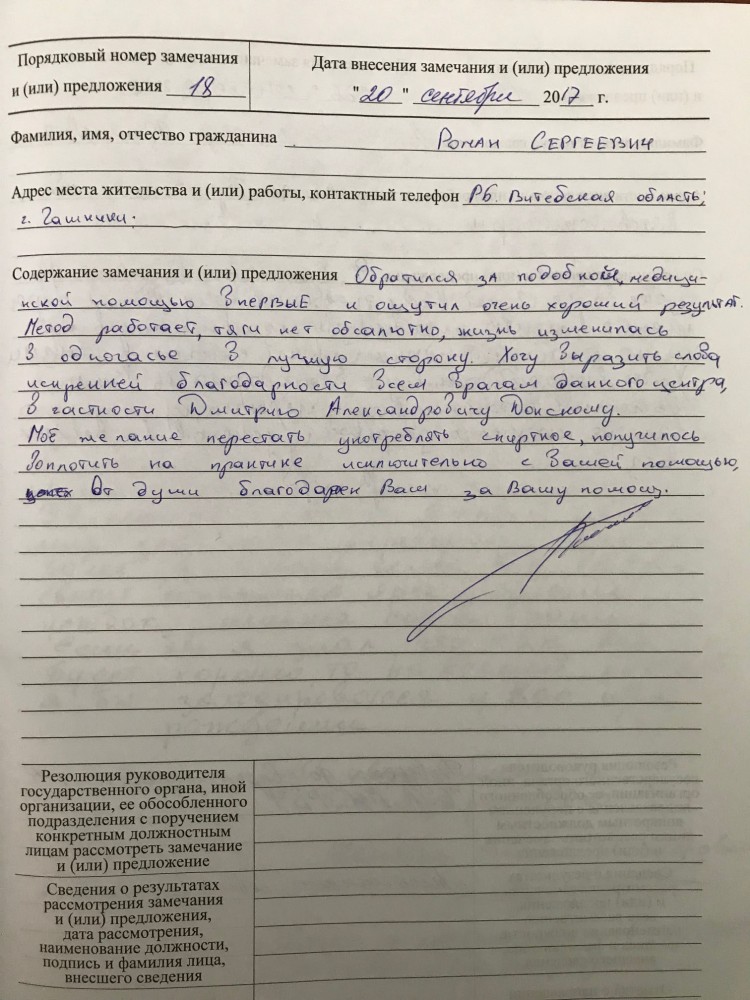 Порядковый номер замечания
и (или) предложения 18
Дата внесения замечания и (или) предложения
"20" сентября 2017 г.
Фамилия, имя, отчество гражданина Роман Сергеевич
Адрес места жительства и (или) работы, контактный телефон РБ. Витебская область;
г.
Содержание замечания и (или) предложения Обратился за подобной, медици-
нской помощью впервые и ощутил очень хороший результат.
Метод работает, тяги нет обсалютно, жизнь изменилась
в одночасье в лучшую сторону. Хочу выразить слова
искренней благодарности всем врачам данного центра,
в частности Дмитрию Александровичу Донскому.
Моё желание перестать употреблять спиртное, получилось
воплотить на практике исключительно с вашей помощью,
От души благодарен Вам за Вашу помощ.
Резолюция руководителя
государственного органа, иной
организации, ее обособленного
подразделения с поручением
конкретным должностным
лицам рассмотреть замечание
и (или) предложение
Сведения о результатах
рассмотрения замечания
и (или) предложения,
дата рассмотрения,
наименование должности,
подпись и фамилия лица,
внесшего сведения